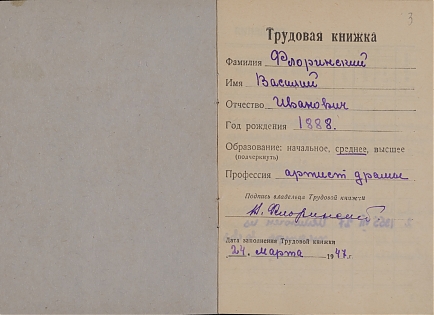 3
Трудовая книжка
Фамилия Флоринский
Имя Василий
Отчество Иванович
Год рождения 1888.
Образование: начальное, среднее, высшее
(подчеркнуть)
Профессия артист драмы
Подпись владельца Трудовой книжки
В. Флоринский
Дата заполнения Трудовой книжки
24. марта 1947 г.